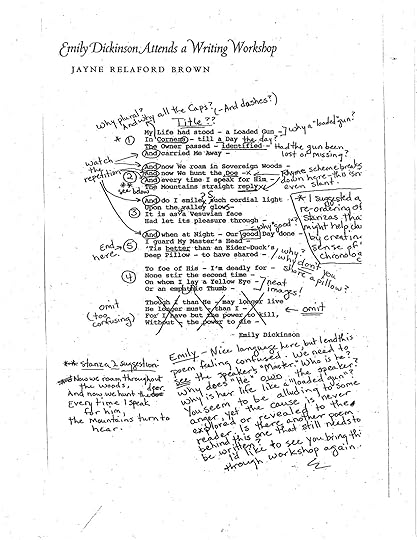 Emily Dickinson Attends a Writing Workshop
JAYNE RELAFORD BROWN
why plural?
And why all the Caps? (-And dashes?)
Title??
* ① My Life had stood - a Loaded Gun - why a "loaded" gun?
In Corners - till a Day the day?
The Owner passed - identified - Had the gun been
And carried Me Away - lost or missing?
watch
the
repetition
And now We roam in Sovereign Woods -
② And now We hunt the Doe - Rhyme scheme breaks
And every time I speak for Him - down here - this isn't
** see below
The Mountains straight reply even slant.
And do I smile, such cordial light
Upon the valley glow -
③ It is as a Vesuvian face
Had let its pleasure through -
* I suggest a
re-ordering of
stanzas tha
might help cla
by creatin
sense of
chronolo
why "good"?
And when at Night - Our good Day done -
end
here.
⑤ I guard My Master's Head -
'Tis better than an Eider-Duck's
Deep Pillow - to have shared -
why?
why don't you
share a pillow?
To foe of His - I'm deadly for -
④ None stir the second time -
On whom I lay a Yellow Eye -
Or an emphatic Thumb -
neat
images!
omit
(too
confusing)
Though I than He - may longer live
He longer must - than I -
For I have but the power to kill,
Without - the power to die -
omit
Emily Dickinson
** stanza 2 suggestion:
Now we roam throughout
the woods,
And now we hunt the deer,
Every time I speak
for him,
the Mountains turn to
hear.
Emily - Nice language here, but I end this
poem feeling confused. We need to
see the speaker's "Master." Who is he?
Why does "He" own the speaker?
Why is her life like a "loaded gun"?
You seem to be alluding to some
anger, yet the cause is never
explored or revealed to the
reader. Is there another poem
behind this one that still needs to
be written?
I'd like to see you bring thi
through workshop again.